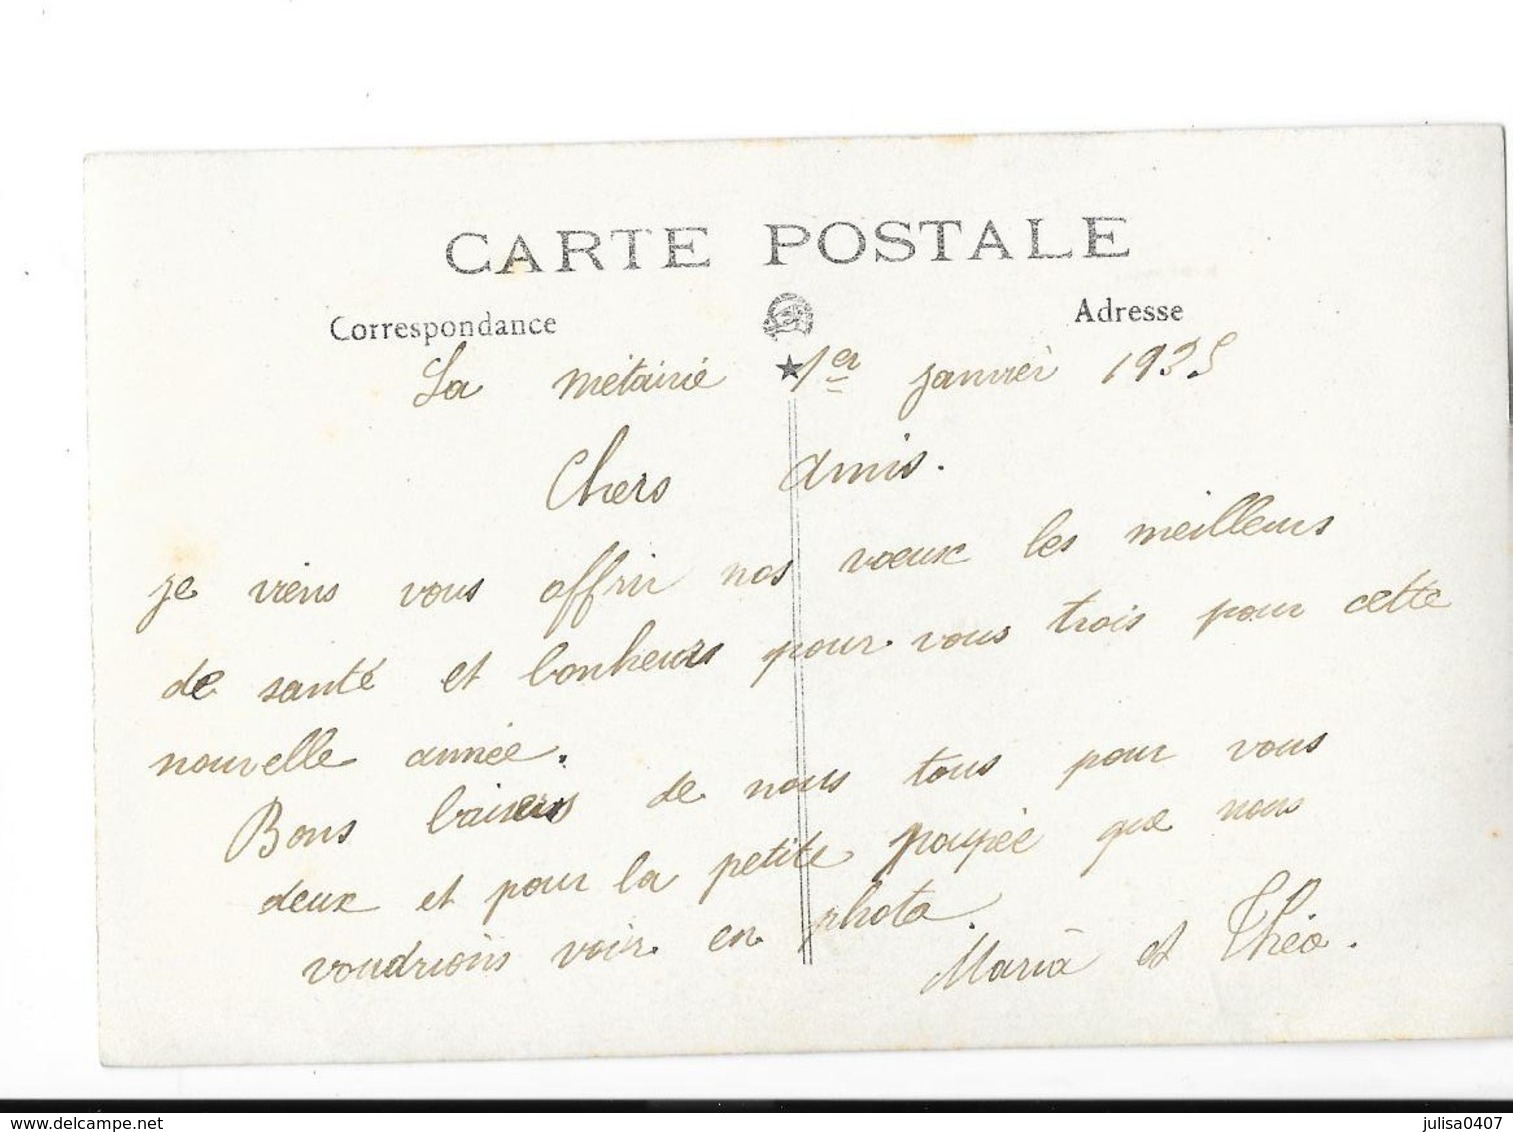 CARTE POSTALE
Correspondance
Adresse
La métairie 1er janvier 1925
Chers amis.
je viens vous offrir nos voeux les meilleurs
de santé et bonheurs pour vous trois pour cette
nouvelle année.
Bons baisers de nous tous pour vous
deux et pour la petite poupée que nous
voudrions voir en photo.
Maria et Théo.
delcampe.net
julisa0407